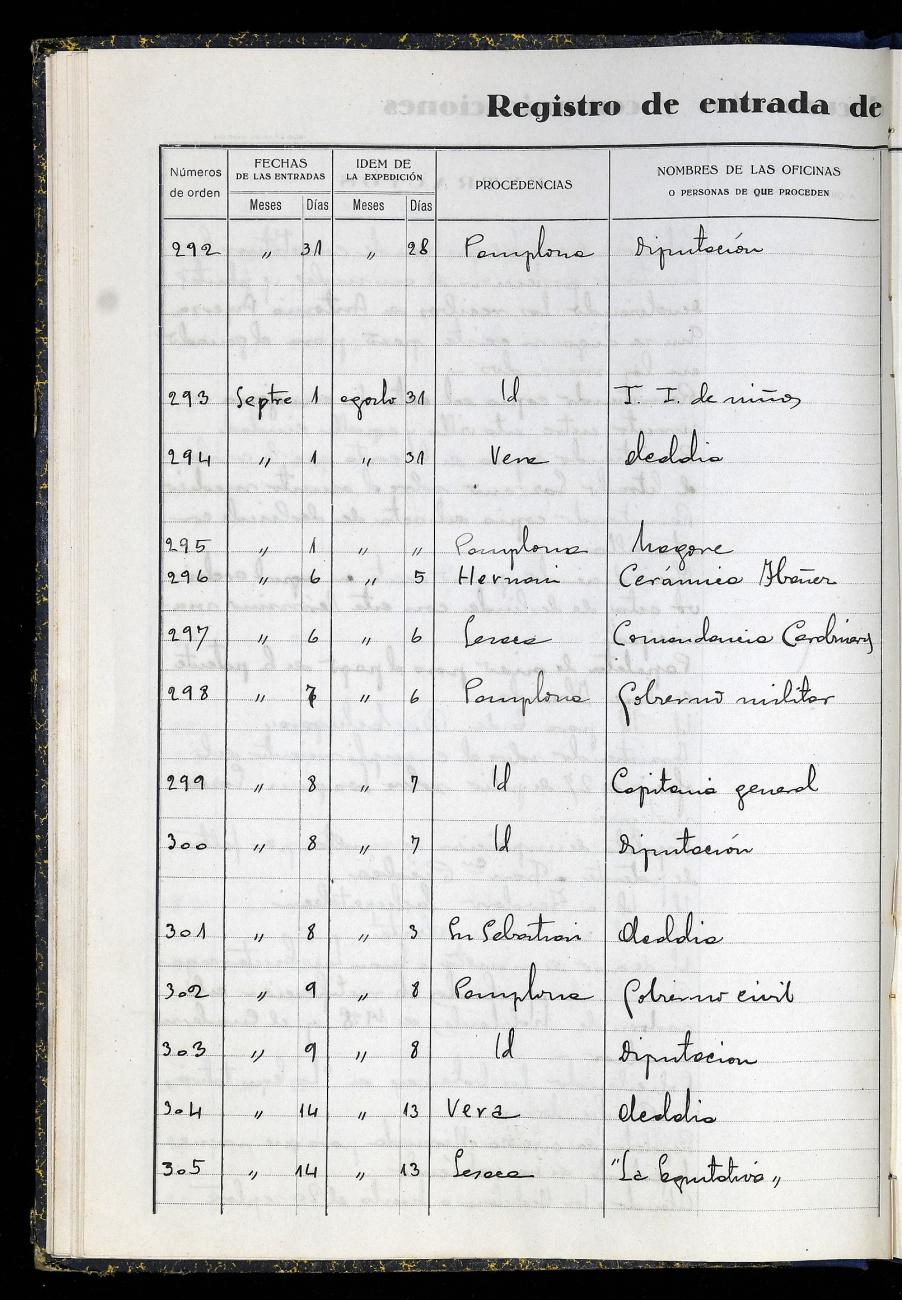 Registro de entrada de
Números de orden | FECHAS DE LAS ENTRADAS | IDEM DE LA EXPEDICIÓN | PROCEDENCIAS | NOMBRES DE LAS OFICINAS O PERSONAS DE QUE PROCEDEN
Meses | Días | Meses | Días
292 " 31 " 28 Pamplona Diputación
293 Septre 1 agosto 31 Id T. I. de niños
294 " 1 " 31 Vera alcaldia
295 " 1 " " Pamplona
296 " 6 " 5 Hernani Cerámica Ibañez
297 " 6 " 6 Lesaca Comandancia Carabineros
298 " 7 " 6 Pamplona Gobierno militar
299 " 8 " 7 Id Capitania general
300 " 8 " 7 Id Diputación
301 " 8 " 3 Sn Sebastian alcaldia
302 " 9 " 8 Pamplona Gobierno civil
303 " 9 " 8 Id Diputacion
304 " 14 " 13 Vera alcaldia
305 " 14 " 13 Lesaca "La Equitativa"